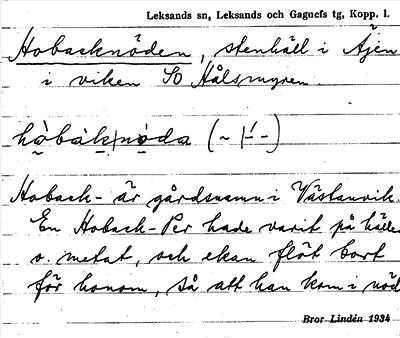 Leksands sn, Leksands och Gagnefs tg, Kopp. l.
Hobacknöden, stenhäll i Åjen
i viken SO Hålsmyren.
hòbàk|nòda (~ |-́ -)
Hoback- är gårdsnamn i Västanvik.
En Hoback-Per hade varit på hällen
o. metat, och ekan flöt bort
för honom, så att han kom i nöd
Bror Lindén 1934